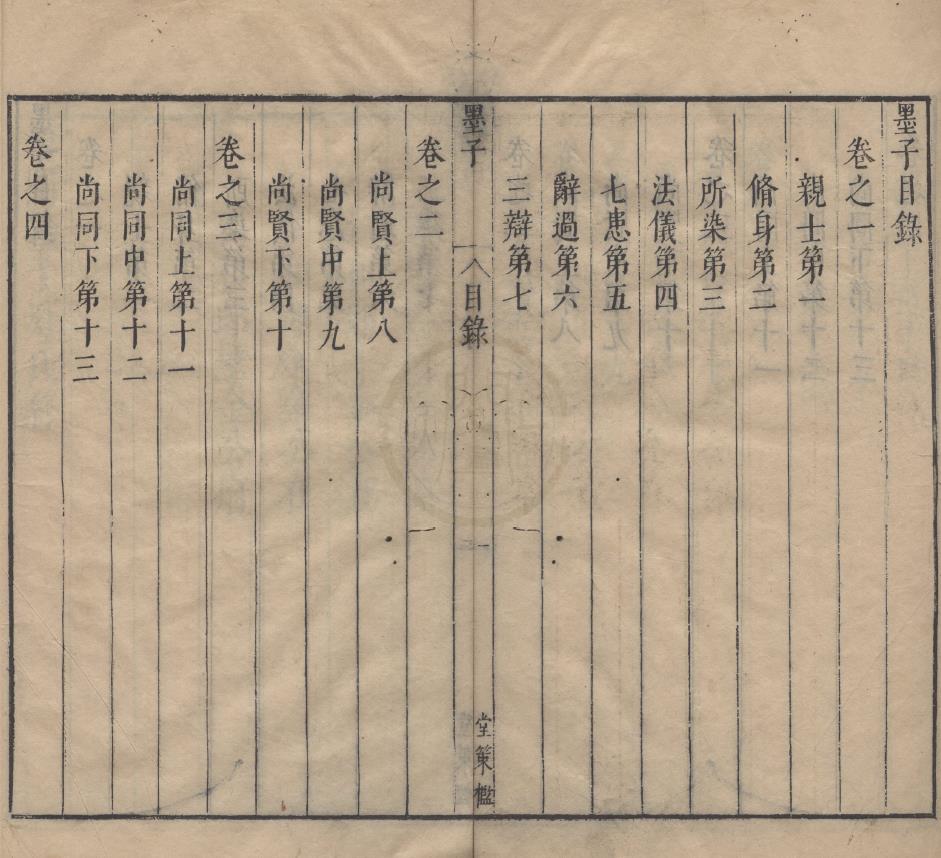 墨子目錄
卷之一
親士第一
脩身第二
所染第三
法儀第四
七患第五
辭過第六
三辯第七
墨子
目錄
一
堂策檻
卷之二
尚賢上第八
尚賢中第九
尚賢下第十
卷之三
尚同上第十一
尚同中第十二
尚同下第十三
卷之四